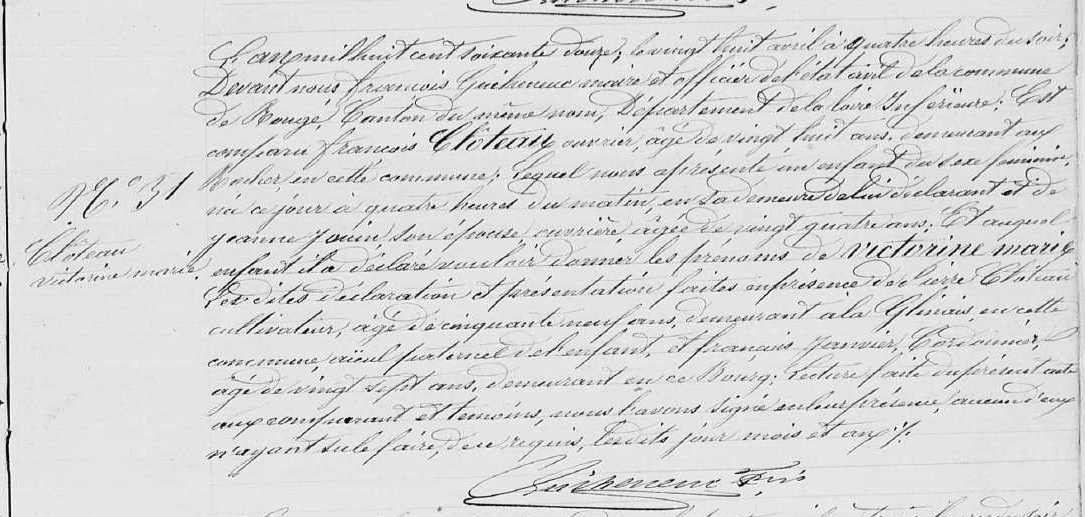 N.° 31
Clôteau
victorine marie.
L'an mil huit cent soixante douze, le vingt huit avril à quatre heures du soir;
Devant nous françois Guiheneuc maire et officier de l'état civil de la commune
de Rougé, Canton du même nom, Département de la loire Inférieure: Est
comparu françois Clôteau ouvrier, âgé de vingt huit ans, demeurant aux
Rocher en cette commune; Lequel nous a présenté un enfant du sexe féminin,
né ce jour à quatre heures du matin, en sa demeure de lui déclarant et de
jeanne Jouin son épouse, ouvrière âgée de vingt quatre ans; Et auquel
enfant il a déclaré vouloir donner les prénoms de victorine marie
Les dites déclaration et présentation faites en présence de Pierre Cloteau
cultivateur, âgé de cinquante neuf ans, demeurant à la Glinais, en cette
commune, aïeul paternel de l'enfant, et françois Janvier, Cordonnier,
âgé de vingt sept ans, demeurant en ce Bourg; Lecture faite du présent acte
aux comparant et temoins, nous l'avons signé en leur présence, aucun d'eux
n'ayant su le faire, de ce requis, les dits jour mois et an ./.
Guiheneuc